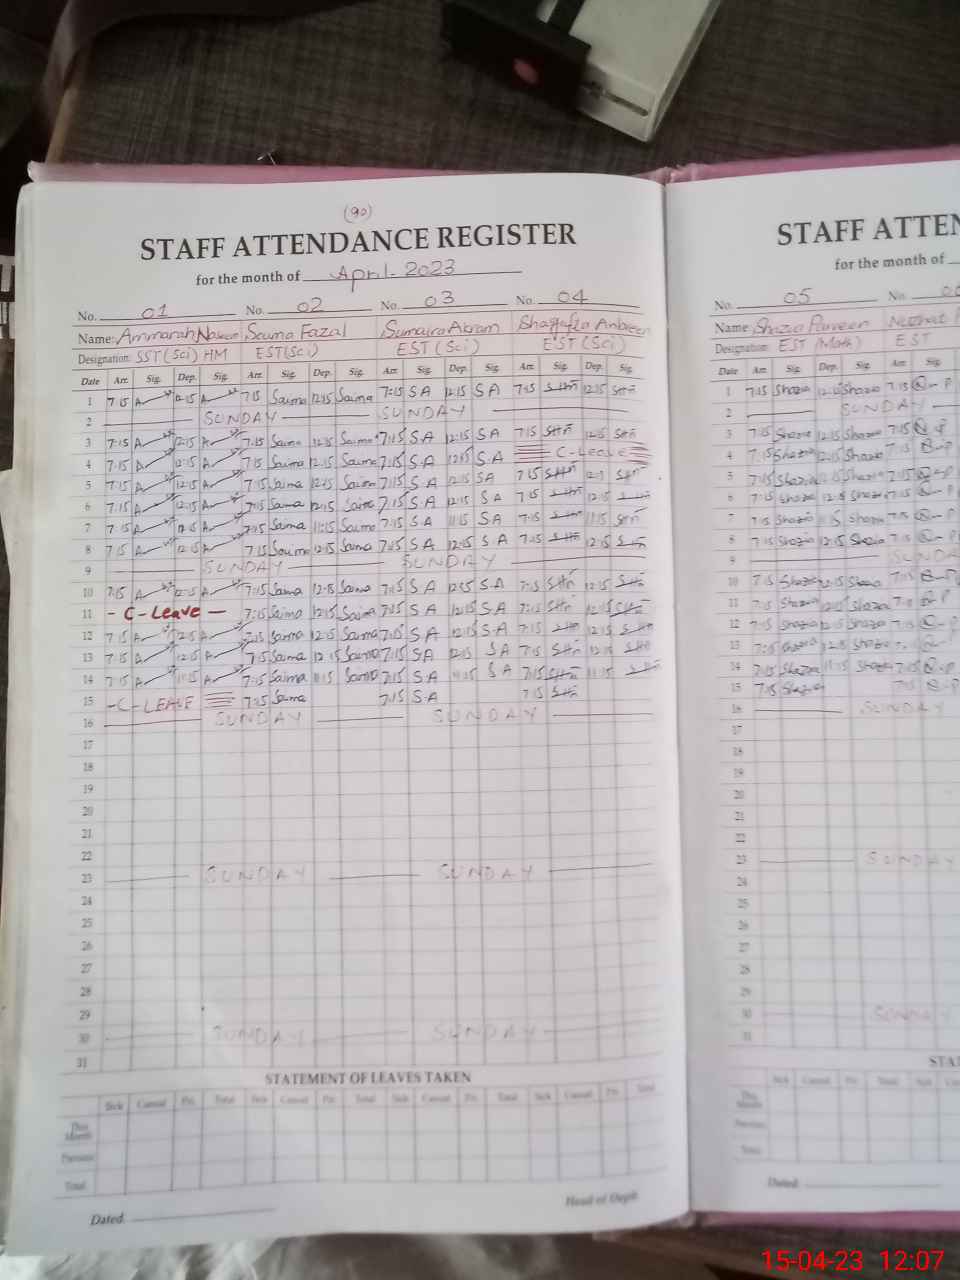 (90)
STAFF ATTENDANCE REGISTER
for the month of April. 2023
No. 01 No. 02 No. 03 No. 04
Name: Ammarah Naseem Saima Fazal Sumaira Akram Shagufta Anbreen
Designation: SST (Sci) HM EST (Sci) EST (Sci) EST (Sci)
Date Arr. Sig. Dep. Sig. Arr. Sig. Dep. Sig. Arr. Sig. Dep. Sig. Arr. Sig. Dep. Sig.
1 7:15 12:15 7:15 Saima 12:15 Saima 7:15 S A 12:15 S A 7:15 12:15
2 SUNDAY SUNDAY
3 7:15 12:15 7:15 Saima 12:15 Saima 7:15 S.A 12:15 S A 7:15 12:15
4 7:15 12:15 7:15 Saima 12:15 Saima 7:15 S.A 12:15 S.A C-Leave
5 7:15 12:15 7:15 Saima 12:15 Saima 7:15 S.A 12:15 SA 7:15
6 7:15 12:15 7:15 Saima 12:15 Saima 7:15 S.A 12:15 S A 7:15 12:15
7 7:15 12:15 7:15 Saima 11:15 Saima 7:15 S.A 11:15 S.A 7:15 11:15
8 7:15 12:15 7:15 Saima 12:15 Saima 7:15 S.A 12:15 S.A 7:15 12:15
9 SUNDAY SUNDAY
10 7:15 12:15 7:15 Saima 12:15 Saima 7:15 S A 12:15 S.A 7:15 12:15
11 - C-Leave - 7:15 Saima 12:15 Saima 7:15 S A 12:15 S.A 7:15 12:15
12 7:15 12:15 7:15 Saima 12:15 Saima 7:15 S A 12:15 S.A 7:15 12:15
13 7:15 12:15 7:15 Saima 12:15 Saima 7:15 S A 12:15 S A 7:15 12:15
14 7:15 11:15 7:15 Saima 11:15 Saima 7:15 S.A 11:15 S A 7:15 11:15
15 - C-LEAVE 7:15 Saima 7:15 S.A 7:15
16 SUNDAY SUNDAY
17
18
19
20
21
22
23 SUNDAY SUNDAY
24
25
26
27
28
29
30 SUNDAY SUNDAY
31
STATEMENT OF LEAVES TAKEN
Sick Casual Pri. Total Sick Casual Pri. Total Sick Casual Pri. Total Sick Casual Pri. Total
This Month
Previous
Total
Dated Head of Deptt
STAFF ATTEN
for the month of
No. 05 No.
Name: Shazia Parveen
Designation: EST (Math) EST
Date Arr. Sig. Dep. Sig. Arr. Sig.
1 7:15 Shazia 12:15 Shazia 7:15
2 SUNDAY
3 7:15 Shazia 12:15 Shazia 7:15
4 7:15 Shazia 12:15 Shazia 7:15
5 7:15 Shazia 12:15 Shazia 7:15
6 7:15 Shazia 12:15 Shazia 7:15
7 7:15 Shazia 11:15 Shazia 7:15
8 7:15 Shazia 12:15 Shazia 7:15
9 SUNDA
10 7:15 Shazia 12:15 Shazia 7:15
11 7:15 Shazia 12:15 Shazia
12 7:15 Shazia 12:15 Shazia 7:15
13 7:15 Shazia 12:15 Shazia
14 7:15 Shazia 11:15 Shazia 7:15
15 7:15 Shazia 7:15
16 SUNDAY
17
18
19
20
21
22
23 SUNDAY
24
25
26
27
28
29
30 SUNDAY
31
STA
Sick Casual Pri. Total Sick Casual
This Month
Previous
Total
Dated
15-04-23 12:07